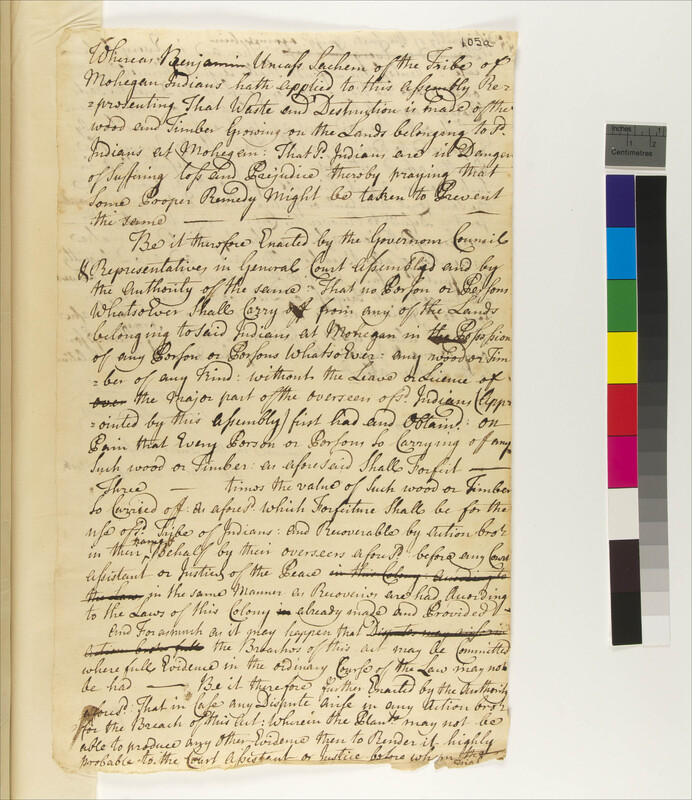 105a
Whereas Benjamin Uncass Sachem of the Tribe of
Mohegan Indians hath applied to this Assembly Re-
=presenting That Waste and Destruction is made of the
wood and Timber Growing on the Lands belonging to sd.
Indians at Mohegan: That sd. Indians are in Danger
of Suffering loss and Prejudice thereby praying that
Some Proper Remedy Might be taken to Prevent
the same —
Be it therefore Enacted by the Governour Council
& Representatives in General Court Assembled and by
the Authority of the same That no Person or Persons
Whatsoever Shall Carry off from any of the Lands
belonging to said Indians at Mohegan in the Possession
of any Person or Persons Whatsoever: any wood or Tim-
=ber of any Kind: without the Leave or Licence of
over the Major part of the overseers of sd. Indians (App-
=ointed by this Assembly) first had and Obtaind: on
Pain that Every Person or Persons So Carrying off any
Such wood or Timber: as aforesaid Shall Forfeit —
Three — times the value of Such wood or Timber
So Carried off: as aforesd. which Forfeiture Shall be for the
use of sd. Tribe of Indians: and Recoverable by Action bro't
in their names Behalf by their overseers aforesd. before any Court
Assistant or Justice of the Peace in this Colony According to
the Law in the same Manner as Recoveries are had According
to the Laws of this Colony in already made and Provided
And Forasmuch as it may happen that Disputes may arise in
Action the Breaches of this act may be Committed
where full Evidence in the ordinary Course of the Law may not
be had — Be it therefore further Enacted by the Authority
aforesd. That in Case any Dispute arise in any Action bro't
for the Breach of this Act: wherein the Plant. may not be
able to produce any Other Evidence then to Render it highly
probable to the Court Assistant or Justice before whom the
Inches
1 2
Centimetres